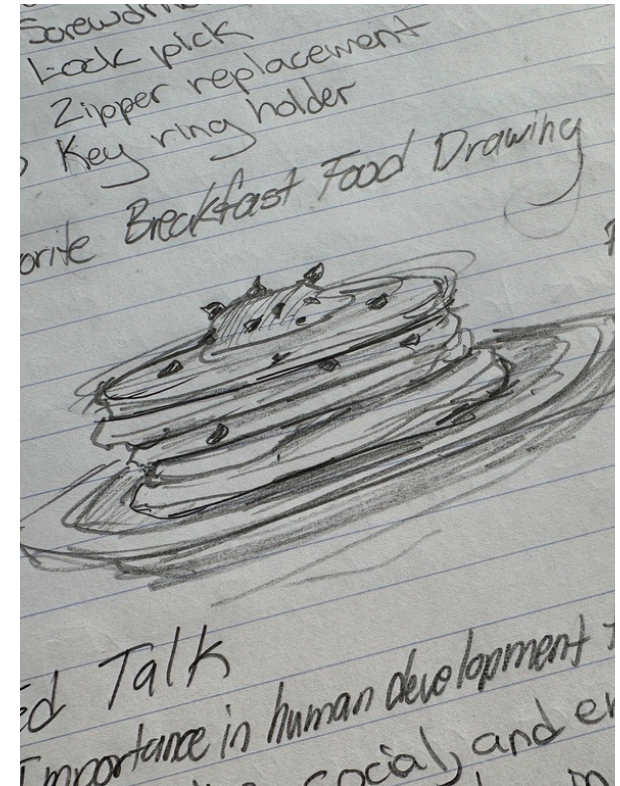 Lock pick
Zipper replacement
Key ring holder
orite Breakfast Food Drawing
ed Talk
Importance in human development
social, and
in